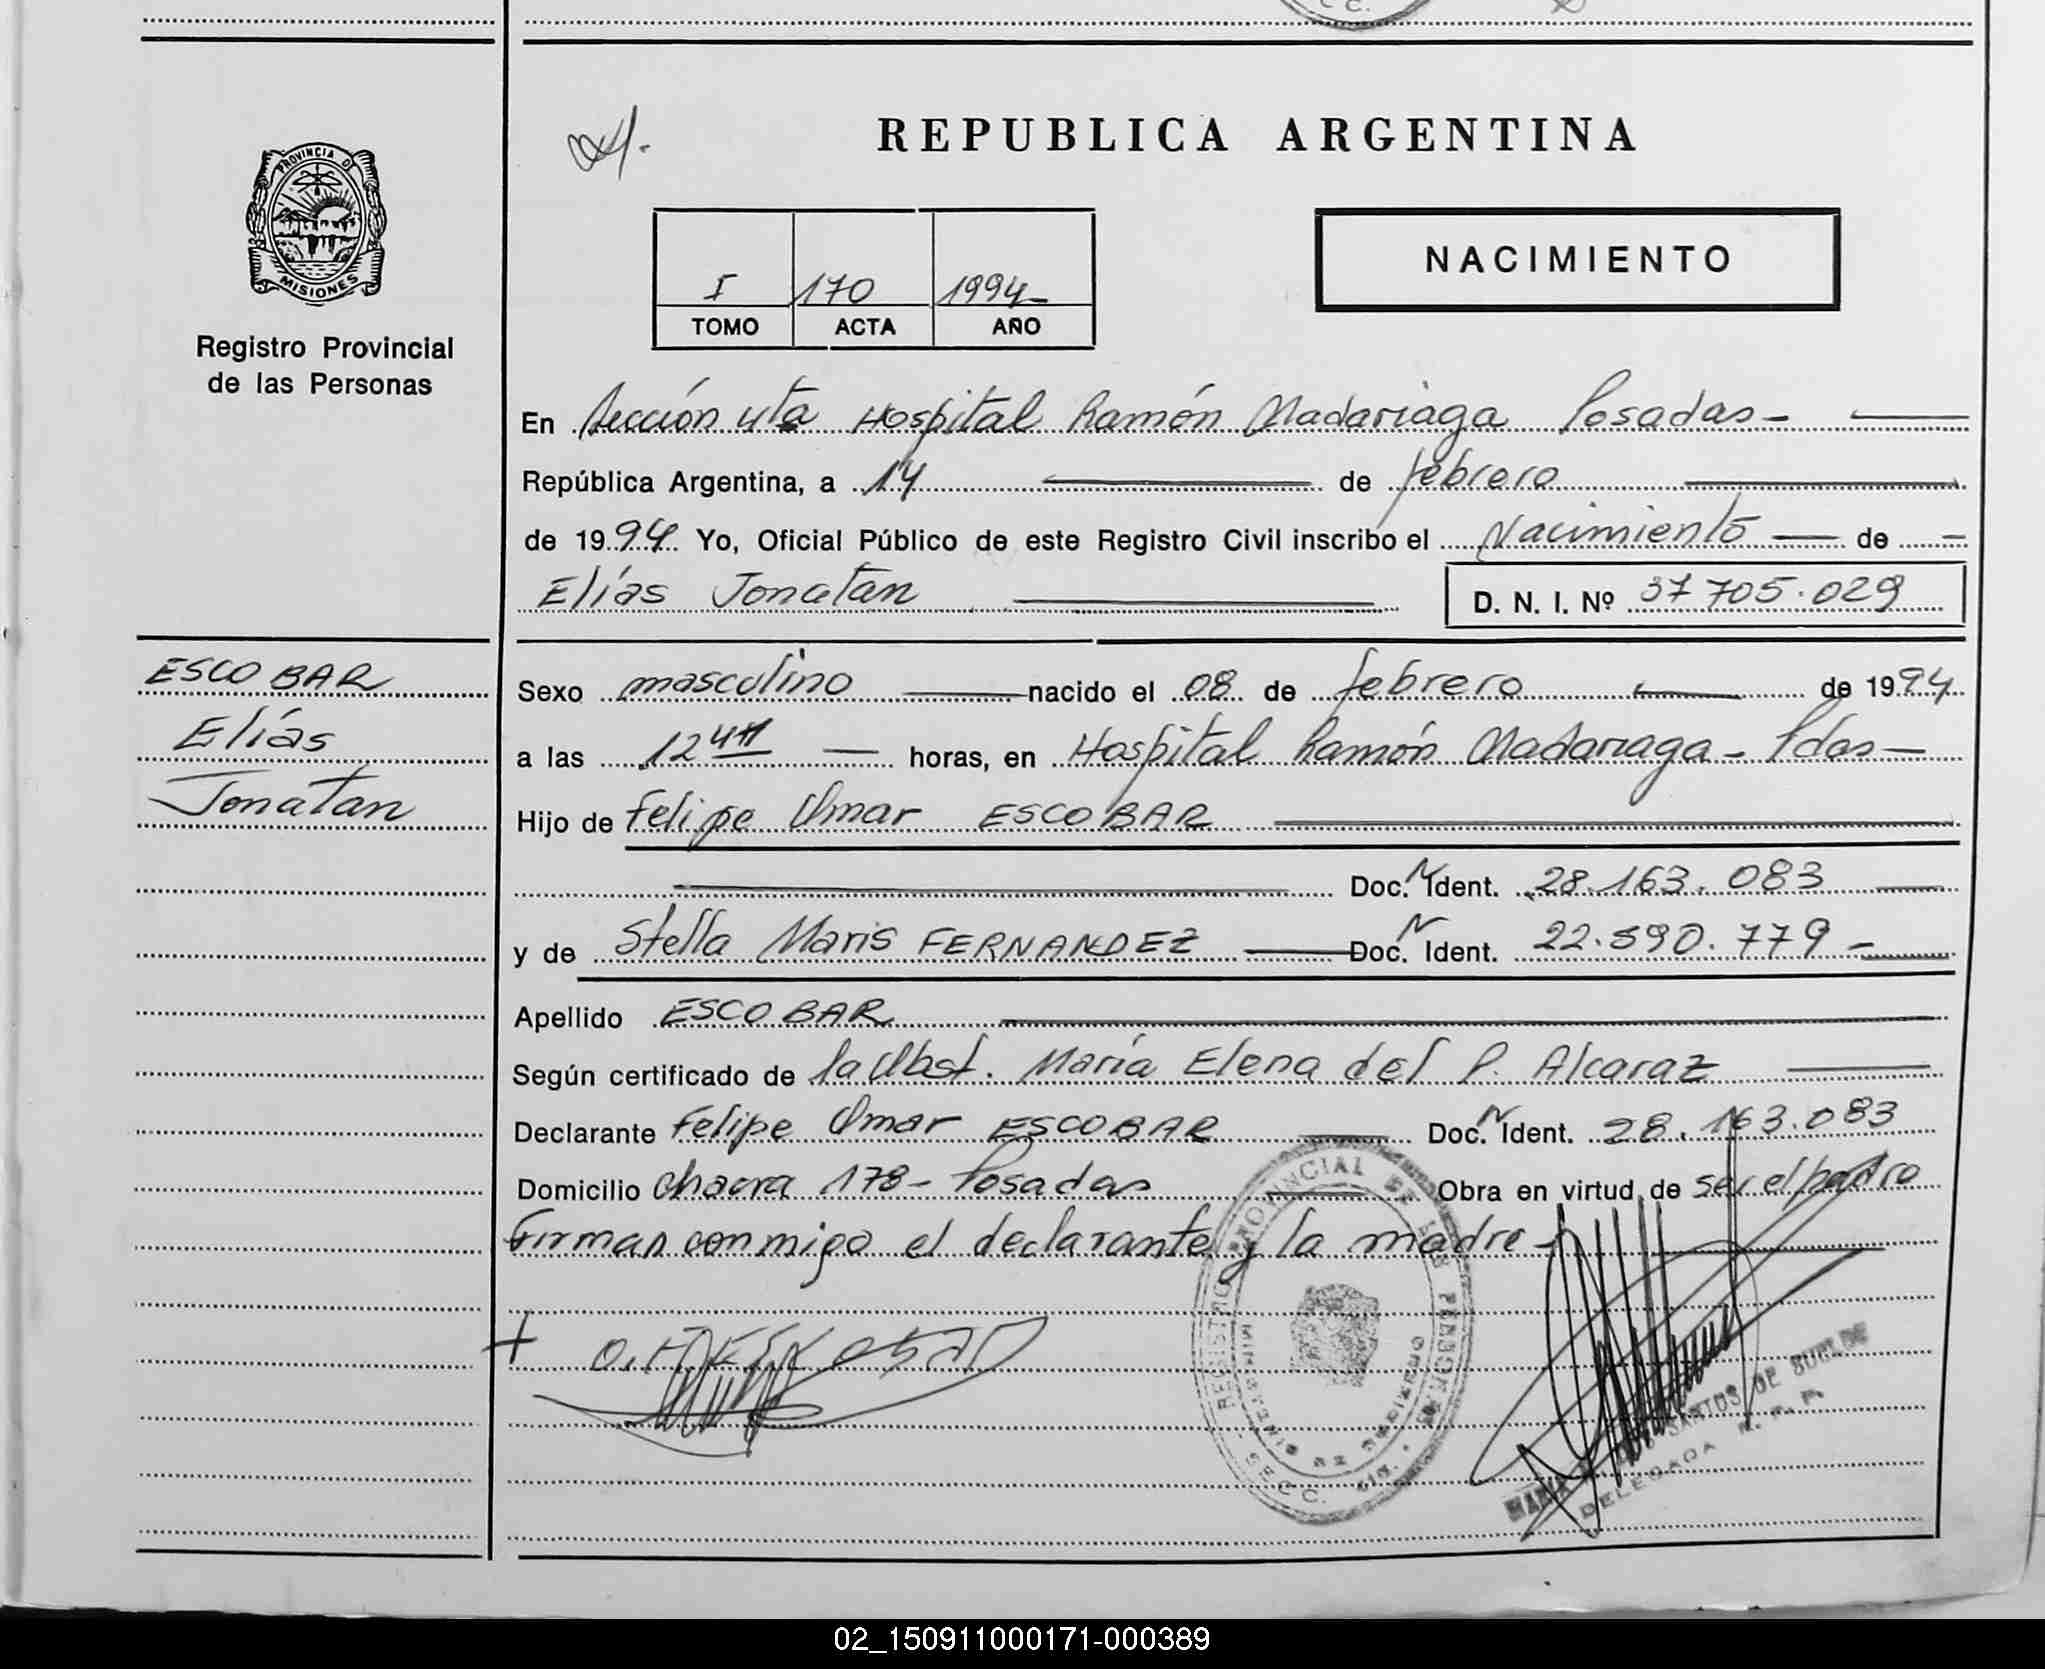 REPUBLICA ARGENTINA
PROVINCIA D
MISIONES
Registro Provincial
de las Personas
I 170 1994
TOMO ACTA AÑO
NACIMIENTO
En Sección 4ta Hospital Ramón Madariaga Posadas
República Argentina, a 14 de febrero
de 1994 Yo, Oficial Público de este Registro Civil inscribo el Nacimiento de
Elías Jonatan D. N. I. Nº 37 705.029
ESCOBAR
Elías
Jonatan
Sexo masculino nacido el 08 de febrero de 1994
a las 12 horas, en Hospital Ramón Madariaga - Pdas
Hijo de Felipe Omar ESCOBAR
Doc. Ident. 28.163.083
y de Stella Maris FERNANDEZ Doc. Ident. 22.590.779
Apellido ESCOBAR
Según certificado de la Obst. María Elena del P. Alcaraz
Declarante Felipe Omar ESCOBAR Doc. Ident. 28.163.083
Domicilio Chacra 178 - Posadas Obra en virtud de ser el padre
Firman conmigo el declarante y la madre
REGISTRO PROVINCIAL DE LAS PERSONAS
SECC.
SANTOS DE
DELEGADA
02_150911000171-000389